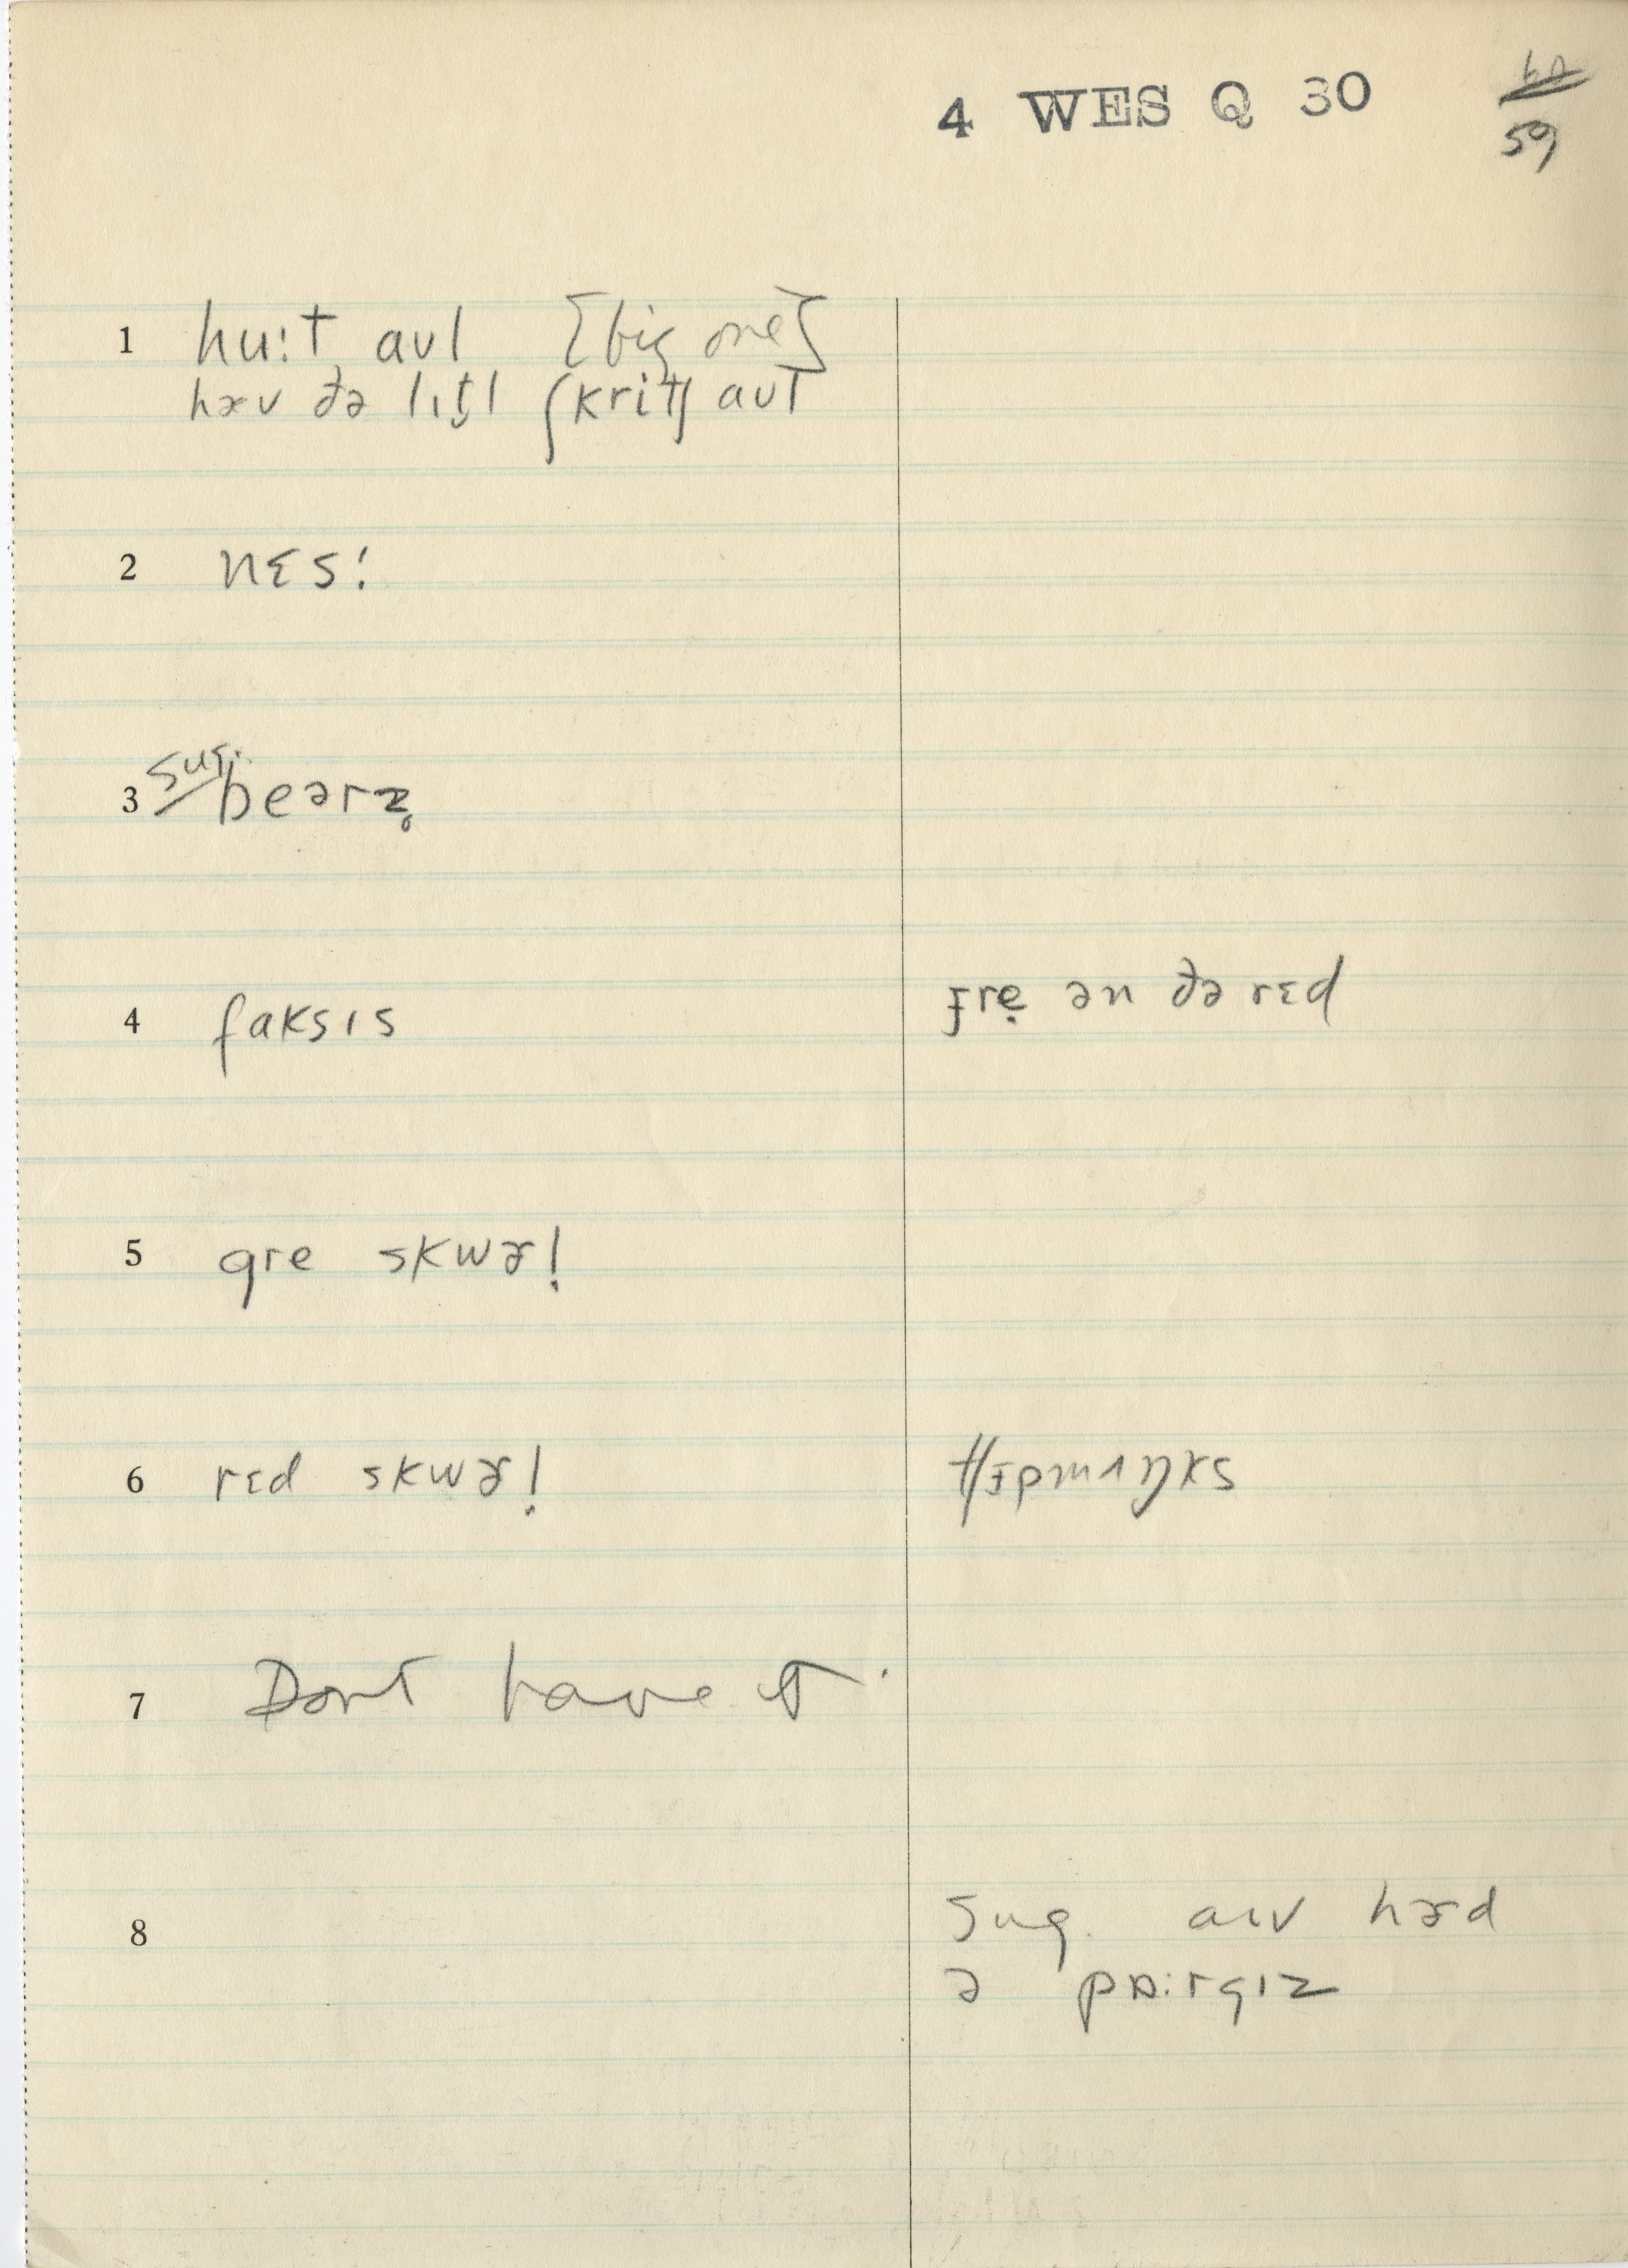 4 WES Q 30
59
1 hu:t aʊl [big one]
hɚv ðə lɪt̬l ʃkritʃ aʊl
2 nɛs!
3 sug. bearz̥
4 faksɪs ɟre̞ ən ðə rɛd
5 gre skwɚl̩
6 rɛd skwɚl̩ tʃɪpmʌŋks
7 Dont have it.
8 sug. aɪv hɚd
ə pɒ:rgɪz